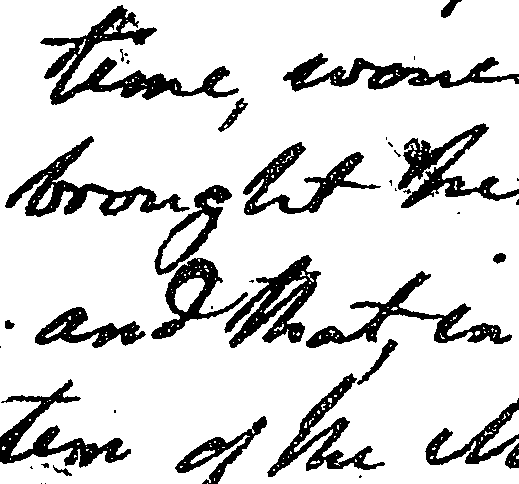 time,
brought the
and that, in
tem of the